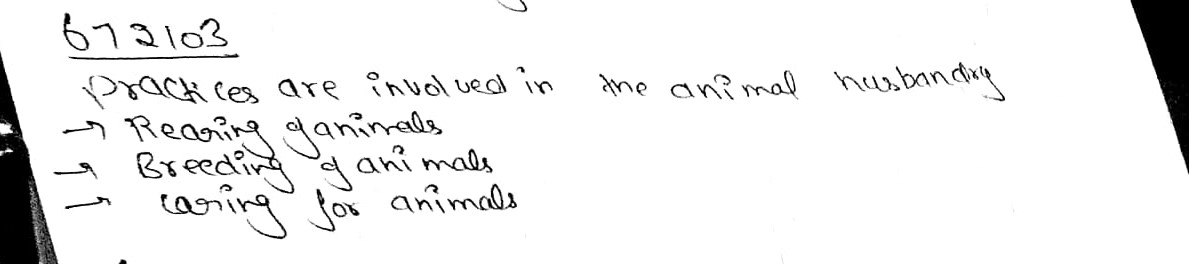 672103
Practices are involved in the animal husbandry
→ Rearing of animals
→ Breeding of animals
→ Caring for animals